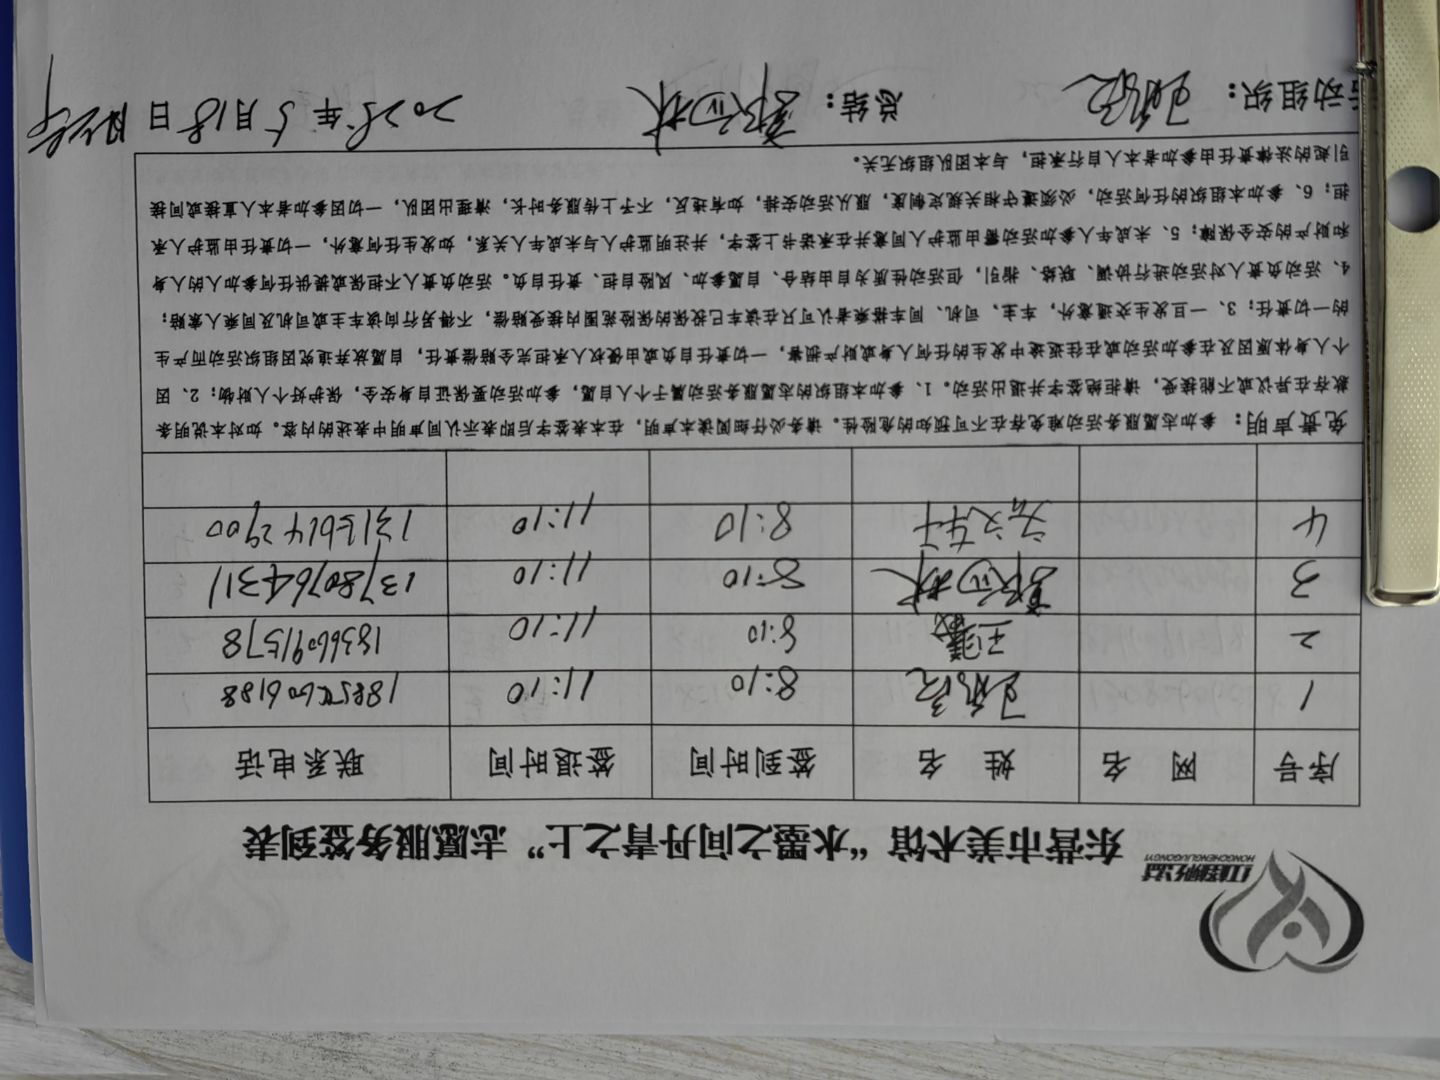 红星刘公益
HONGCHENGLIUGONGYI
东营市美术馆“水墨之间丹青之上”志愿服务签到表
序号 网 名 姓 名 签到时间 签退时间 联系电话
1 8:10 11:10 18854606188
2 8:10 11:10 18366091578
3 8:10 11:10 13780764311
4 8:10 11:10 13156142900
免责声明：参加志愿服务活动难免存在不可预知的危险性。请务必仔细阅读本声明，在本表签字后即表示认同声明中表述的内容。如对本说明条
款存在异议或不能接受，请拒绝签字并退出活动。1、参加本组织的志愿服务活动属于个人自愿，参加活动要保证自身安全，保护好个人财物；2、因
个人身体原因及在参加活动或在往返途中发生的任何人身或财产损害，一切责任自负或由侵权人承担完全赔偿责任，自愿放弃追究因组织活动而产生
的一切责任；3、一旦发生交通意外，车主、司机、同车搭乘者认可只在该车已投保的保险范围内接受赔偿，不得另行向该车主或司机及同乘人索赔；
4、活动负责人对活动进行协调、联络、指引，但活动性质为自由结合、自愿参加、风险自担、责任自负。活动负责人不担保或提供任何参加人的人身
和财产的安全保障；5、未成年人参加活动需由监护人同意并在承诺书上签字，并注明监护人与未成年人关系，如发生任何意外，一切责任由监护人承
担；6、参加本组织的任何活动，必须遵守相关规定制度，服从活动安排，如有违反，不予上传服务时长，清理出团队，一切因参加者本人直接或间接
引起的法律责任由参加者本人自行承担，与本团队组织无关。
活动组织： 总结： 2025年5月18日